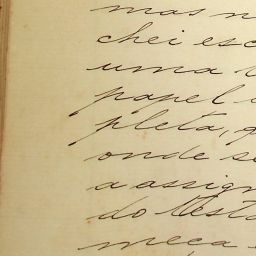 mas n
chei esc
uma
papel
pleta, q
onde se
a assign
do Testa
meça